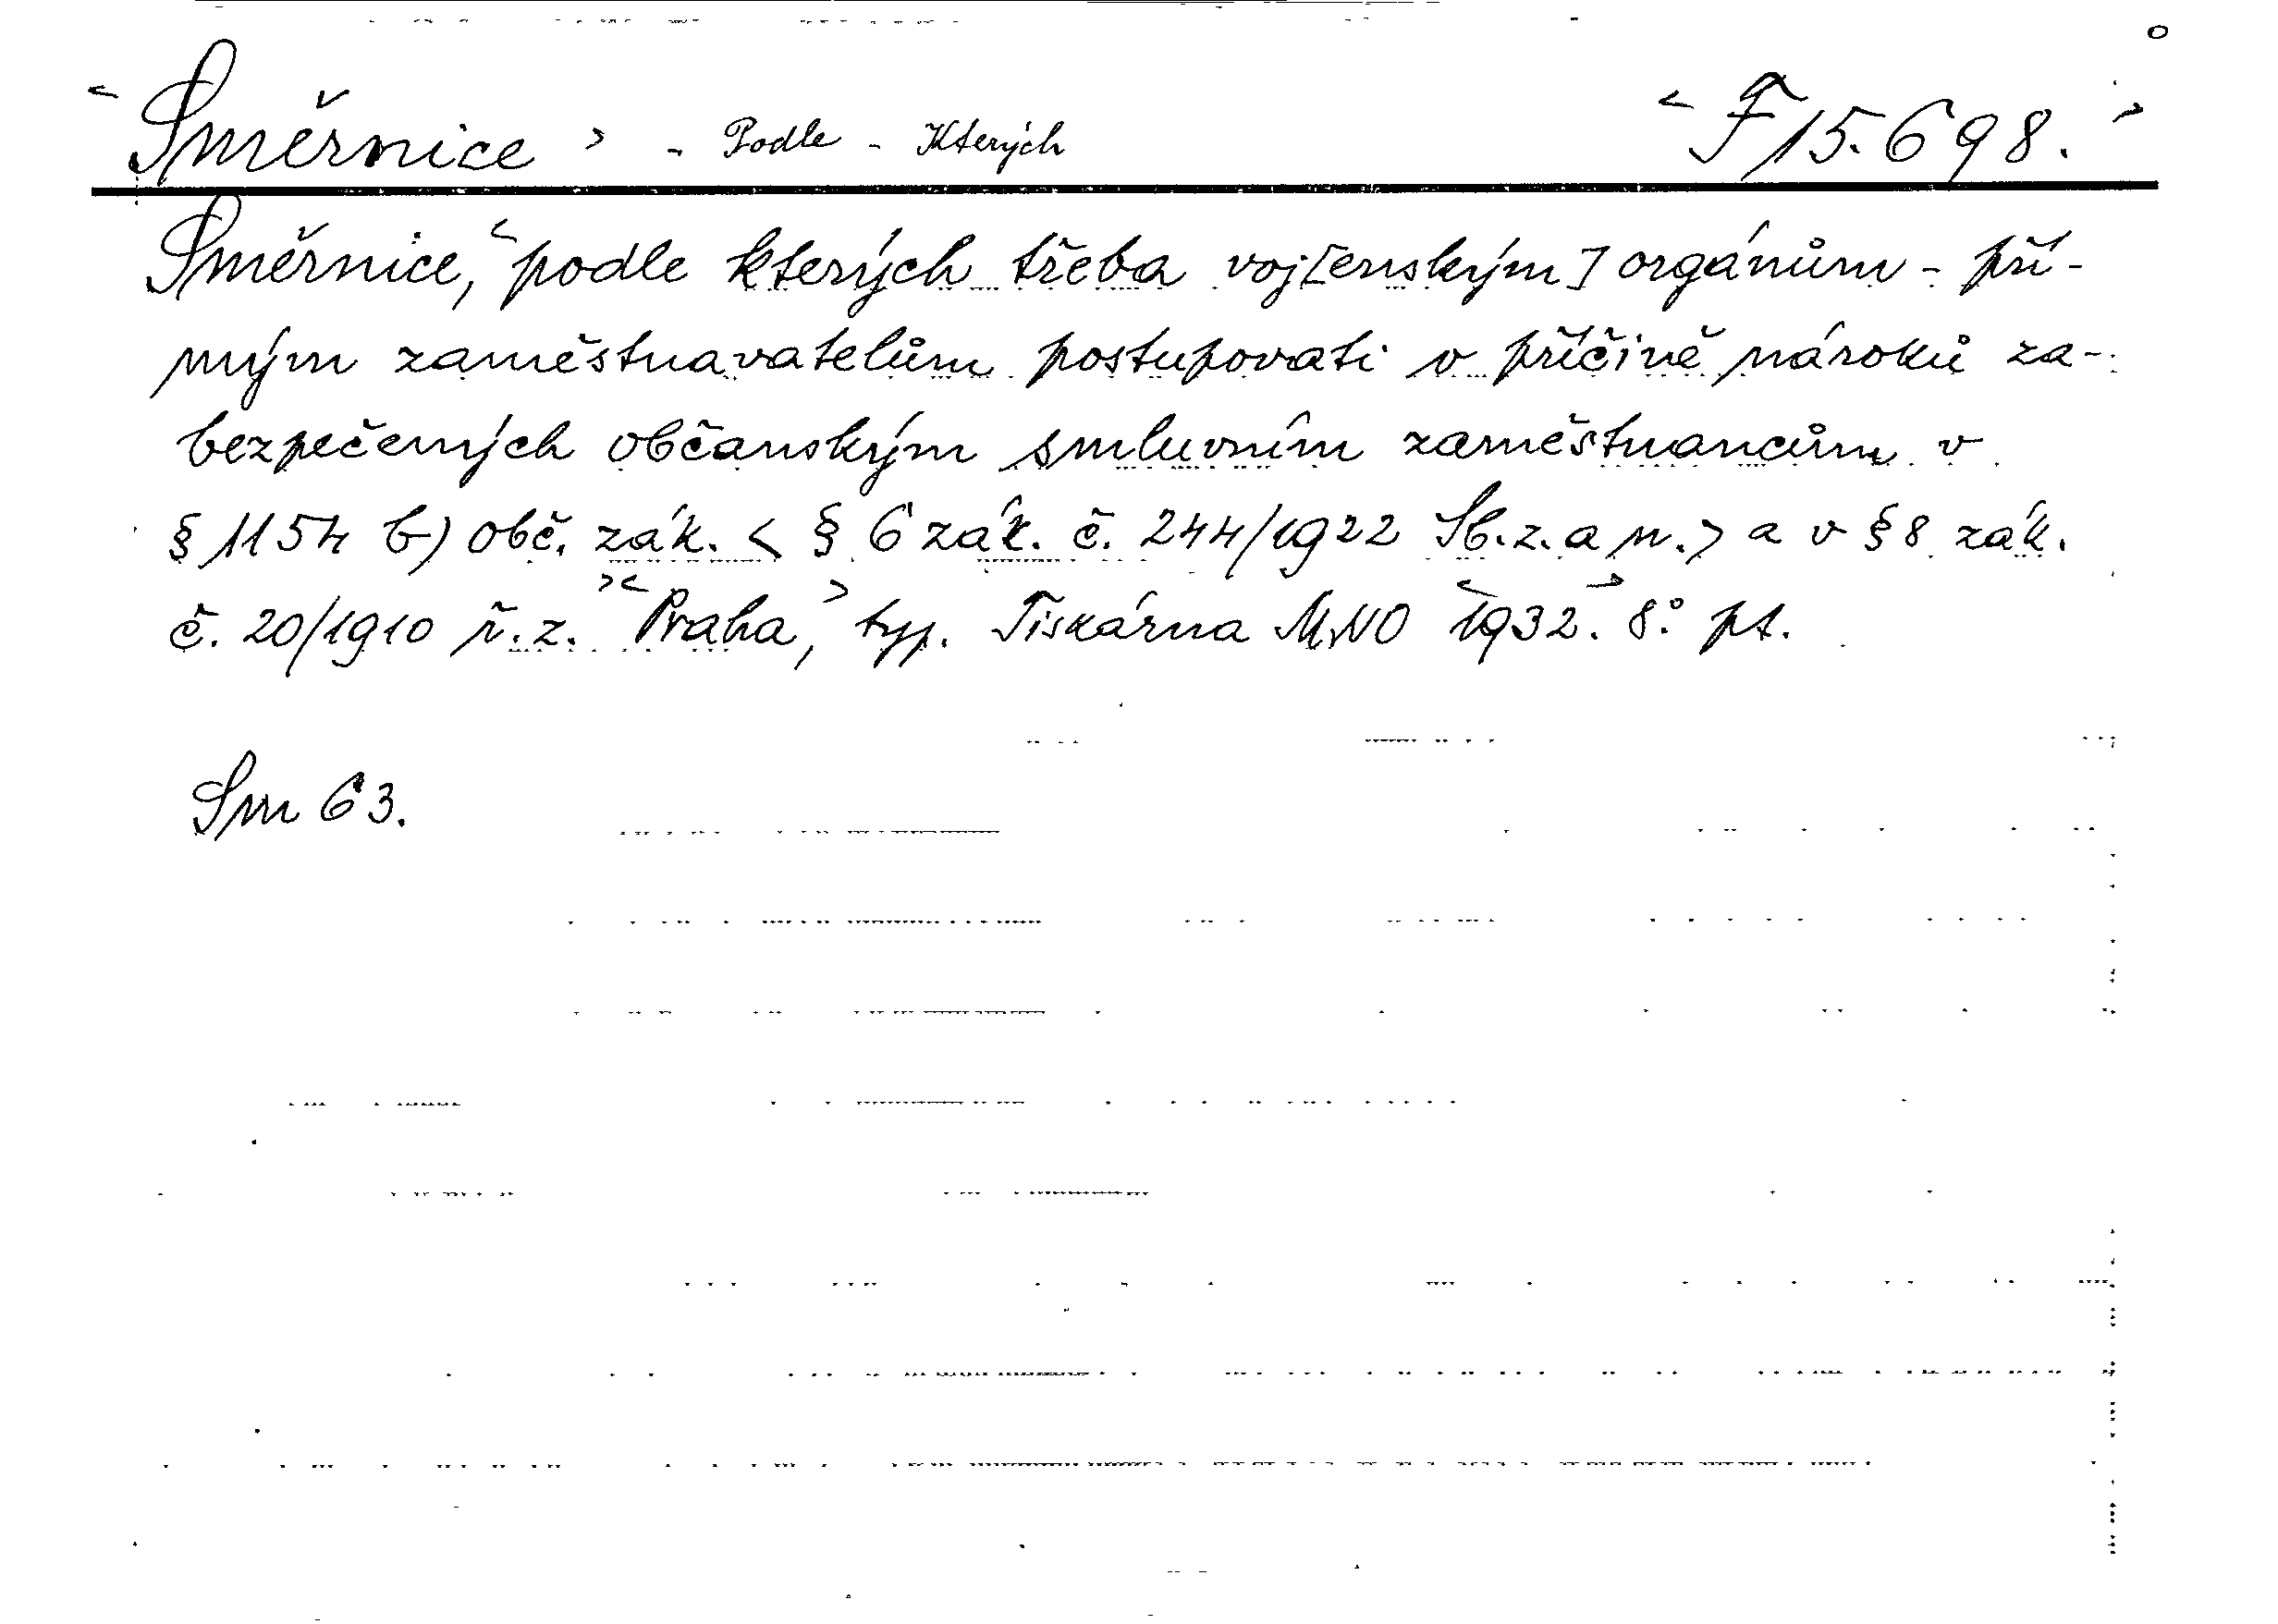 Směrnice - Podle - Kterých F 15.698.
Směrnice, podle kterých třeba voj[enským] orgánům - pří-
mým zaměstnavatelům postupovati v příčině nároků za-
bezpečených občanským smluvním zaměstnancům v
§ 1154 b) obč. zák. < § 6 zák. č. 244/1922 Sb. z. a n. > a v § 8 zák.
č. 20/1910 ř. z. Praha, typ. Tiskárna MNO 1932. 8° pt.
Sm 63.